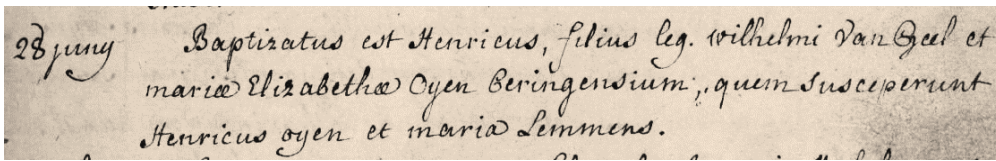 28 juny Baptizatus est Henricus, filius leg. wilhelmi Van Geel et
mariæ Elizabethæ Oyen Beringensium, quem susceperunt
Henricus oyen et maria Lemmens.